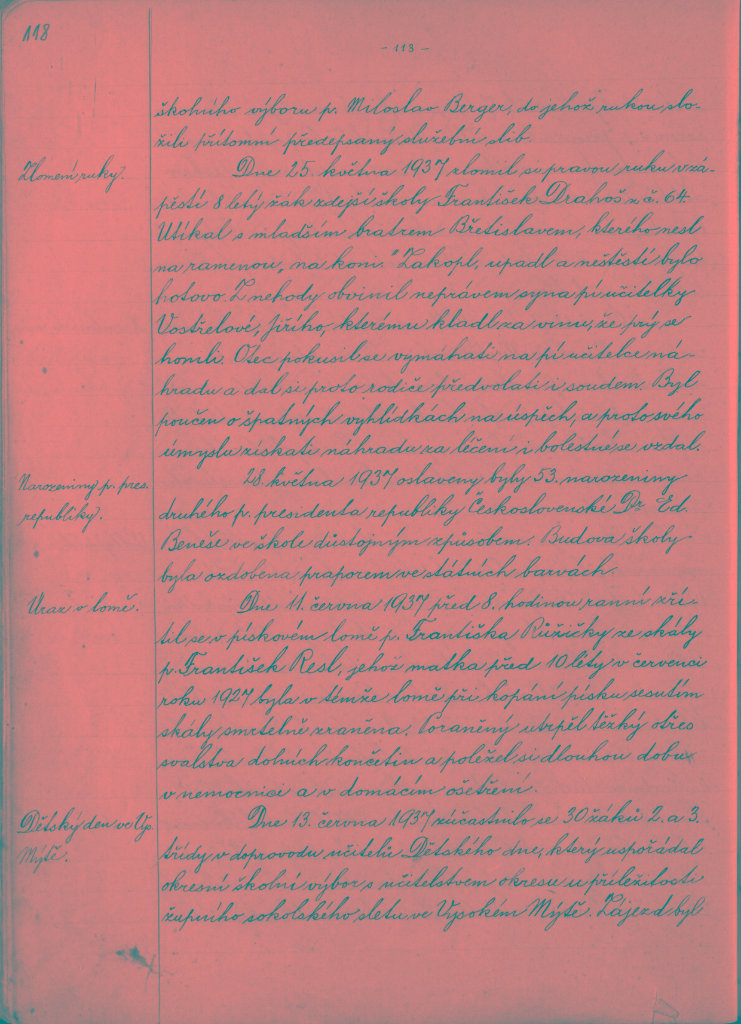 118
- 113 -
školního výboru p. Miloslav Berger, do jehož rukou slo-
žili přítomní předepsaný služební slib.
Zlomení ruky.
Dne 25. května 1937 zlomil si pravou ruku v zá-
pěstí 8 letý žák zdejší školy František Drahoš z č. 64.
Utíkal s mladším bratrem Břetislavem, kterého nesl
na ramenou, na koni." Zakopl, upadl a neštěstí bylo
hotovo. Z nehody obvinil neprávem syna pí učitelky
Vostřelové, Jiřího, kterému kladl za vinu, že prý se
honili. Otec pokusil se vymáhati na pí učitelce ná-
hradu a dal si proto rodiče předvolati i soudem. Byl
poučen o špatných vyhlídkách na úspěch, a proto svého
úmyslu získati náhradu za léčení i bolestné se vzdal.
Narozeniny p. pres.
republiky.
28. května 1937 oslaveny byly 53. narozeniny
druhého p. presidenta republiky Československé Dr. Ed.
Beneše ve škole důstojným způsobem. Budova školy
byla ozdobena praporem ve státních barvách.
Úraz v lomě.
Dne 11. června 1937 před 8. hodinou ranní zří-
til se v pískovém lomě p. Františka Růžičky ze skály
p. František Resl, jehož matka před 10 léty v červenci
roku 1927 byla v témže lomě při kopání písku sesutím
skály smrtelně zraněna. Poraněný utrpěl těžký otřes
svalstva dolních končetin a poležel si dlouhou dobu
v nemocnici a v domácím ošetření.
Dětský den ve Vys.
Mýtě.
Dne 13. června 1937 zúčastnilo se 30 žáků 2. a 3.
třídy v doprovodu učitelů Dětského dne, který uspořádal
okresní školní výbor s učitelstvem okresu u příležitosti
župního sokolského sletu ve Vysokém Mýtě. Zájezd byl